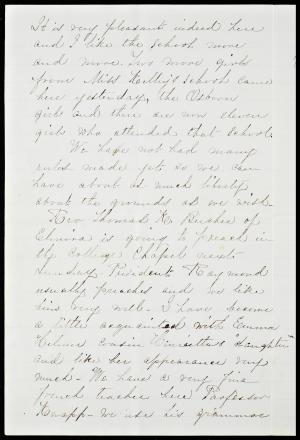 It is very pleasant indeed here
and I like the school more
and more. Two more girls
from Miss Kelly's school came
here yesterday, the Osborn
girls and there are now eleven
girls who attended that school.
We have not had many
rules made yet so we can
have about as much liberty
about the grounds as we wish.
Rev Thomas K Beecher of
Elmira is going to preach in
the College Chapel next
Sunday. President Raymond
usually preaches and we like
him very well. I have become
a little acquainted with Emma
cousin daughter
and like her appearance very
much - We have a very fine
french teacher here Professor
Knapp - we use his grammar